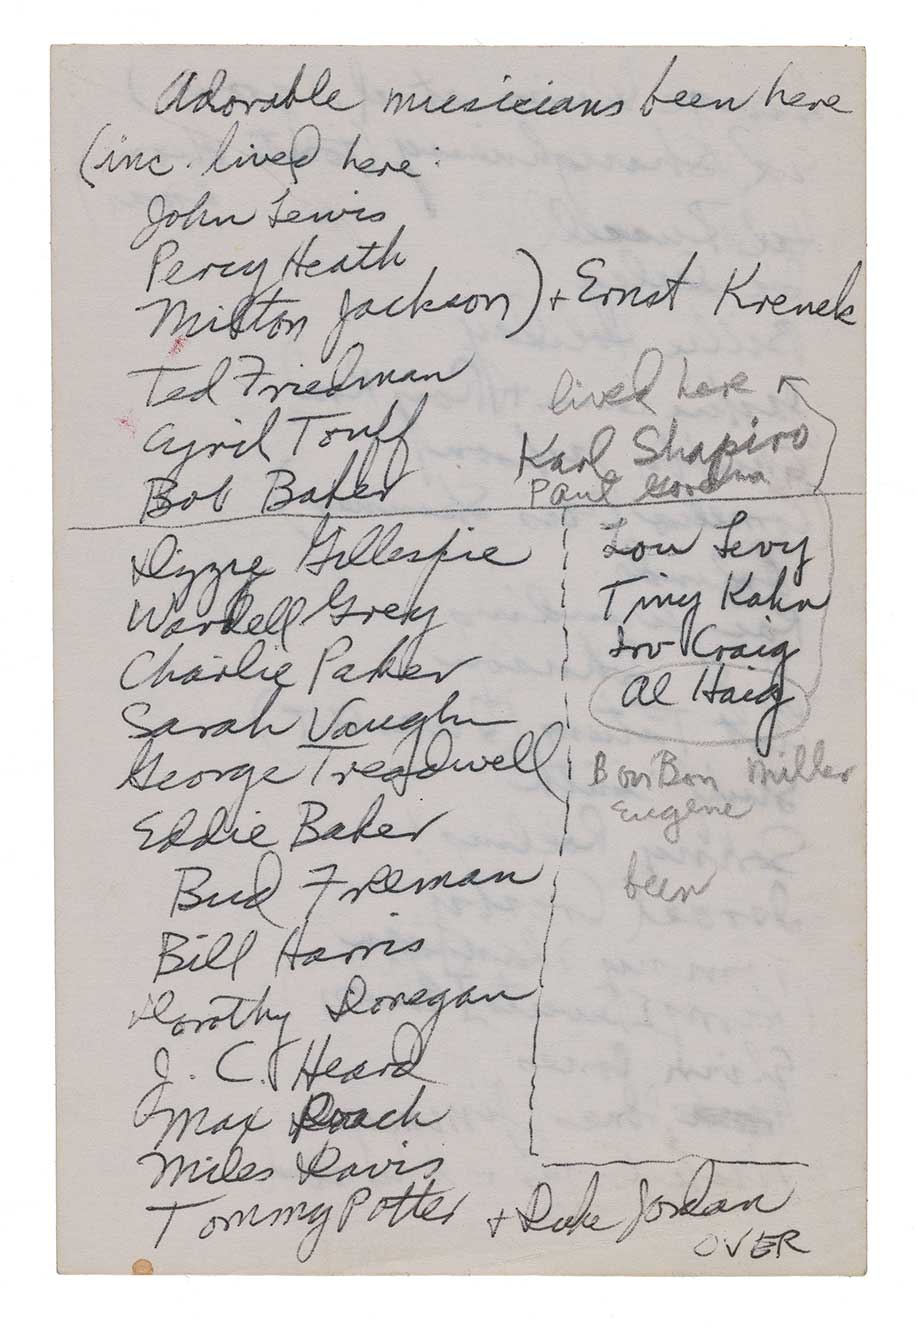 Adorable musicians been here
(inc. lived here:
John Lewis
Percy Heath
Milton Jackson) + Ernst Krenek
Ted Friedman
lived here
Cyril Touff
Karl Shapiro
Bob Baker
Paul
Dizzie Gillespie
Wardell Grey
Charlie Paker
Sarah Vaughn
George Treadwell
Eddie Baker
Bud Freeman
Bill Harris
Dorothy Donegan
J. C. Heard
Max Roach
Miles Davis
Tommy Potter + Duke Jordan
Lou Levy
Tiny Kahn
Irv Craig
Al Haig
BonBon Miller
Eugene
been
OVER